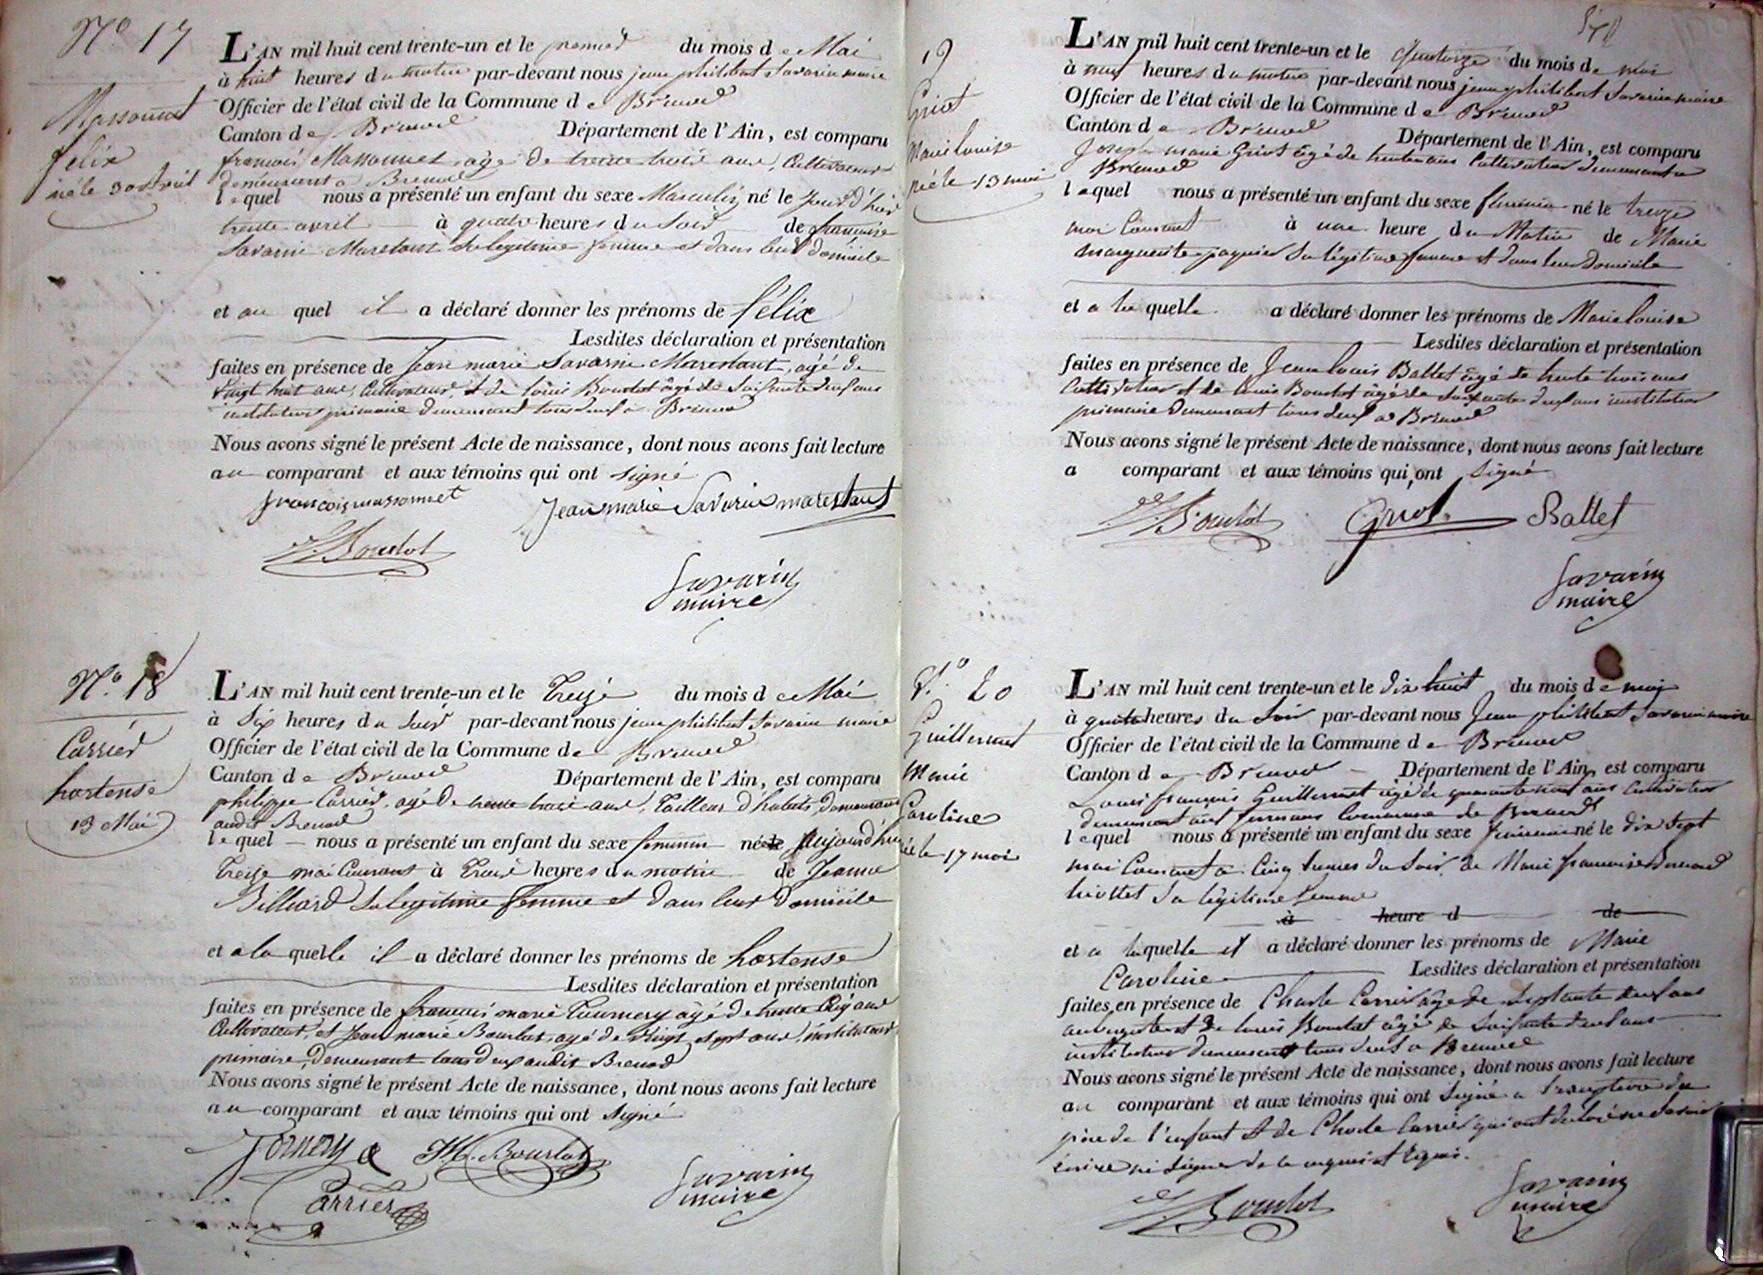 N.° 17
Massonnet
félix
né le 30 avril
L'AN mil huit cent trente-un et le premier du mois de Mai
à huit heures du matin par-devant nous jean philibert Savarin maire
Officier de l'état civil de la Commune de Brenod
Canton de Brenod Département de l'Ain, est comparu
francois Massonnet agé de trente huit ans, Cultivateur
demeurant a Brenod
lequel nous a présenté un enfant du sexe Masculin né le jour d'hier
trente avril à quatre heures du Soir de francoise
Savarin Marestant Sa legitime femme et dans leur domicile
et au quel il a déclaré donner les prénoms de félix
Lesdites déclaration et présentation
faites en présence de Jean marie Savarin Marestant, agé de
vingt huit ans, Cultivateur, & de louis Bourlot âgé de Soixante deux ans
instituteur primaire demeurant tous deux a Brenod
Nous avons signé le présent Acte de naissance, dont nous avons fait lecture
au comparant et aux témoins qui ont signé
francois massonnet
Jean marie Savarin marestant
Bourlot
Savarin
maire
N.° 18
Carrier
hortense
13 Mai
L'AN mil huit cent trente-un et le Treize du mois de Mai
à Six heures du Soir par-devant nous jean philibert Savarin maire
Officier de l'état civil de la Commune de Brenod
Canton de Brenod Département de l'Ain, est comparu
philippe Carrier, agé de trente trois ans, Tailleur d'habits, Demeurant
audit Brenod
lequel nous a présenté un enfant du sexe feminin né le Aujourd'hui
Treize mai Courant à Trois heures du matin de Jeanne
Billiard Sa legitime femme et dans leur domicile
et a la quelle il a déclaré donner les prénoms de hortense
Lesdites déclaration et présentation
faites en présence de francois marie Tournery agé de trente ans
Cultivateur, et Jean marie Bourlot, agé de Vingt sept ans, instituteur
primaire, Demeurant tous deux audit Brenod
Nous avons signé le présent Acte de naissance, dont nous avons fait lecture
au comparant et aux témoins qui ont signé
JM. Bourlot
Carrier
Savarin
maire
19
Griot
Marie louise
née le 13 mai
L'AN mil huit cent trente-un et le Quatorze du mois de mai
à neuf heures du matin par-devant nous jean philibert Savarin maire
Officier de l'état civil de la Commune de Brenod
Canton de Brenod Département de l'Ain, est comparu
Joseph marie Griot âgé de trente ans Cultivateur demeurant a
Brenod
lequel nous a présenté un enfant du sexe féminin né le treize
mai Courant à une heure du Matin de Marie
marguerite Sa légitime femme & dans leur Domicile
et a la quelle a déclaré donner les prénoms de Marie louise
Lesdites déclaration et présentation
faites en présence de Jean louis Ballet âgé de trente trois ans
Cultivateur & de louis Bourlot âgé de Soixante deux ans instituteur
primaire demeurant tous deux a Brenod
Nous avons signé le présent Acte de naissance, dont nous avons fait lecture
a comparant et aux témoins qui ont Signé
Bourlot Griot Ballet
Savarin
maire
N.° 20
Guillermet
Marie
Caroline
née le 17 mai
L'AN mil huit cent trente-un et le dix huit du mois de mai
à quatre heures du Soir par-devant nous Jean philibert Savarin maire
Officier de l'état civil de la Commune de Brenod
Canton de Brenod Département de l'Ain, est comparu
Louis françois Guillermet âgé de quarante neuf ans Cultivateur
demeurant aux Commune de Brenod
lequel nous a présenté un enfant du sexe féminin né le dix Sept
mai Courant a Cinq heures du Soir de Marie francoise
Sa légitime femme
à heure d de
et a la quelle il a déclaré donner les prénoms de Marie
Caroline Lesdites déclaration et présentation
faites en présence de Charle Carrier âgé de Septante ans
aubergiste & de louis Bourlot âgé de Soixante deux ans
instituteur demeurant tous deux a Brenod
Nous avons signé le présent Acte de naissance, dont nous avons fait lecture
au comparant et aux témoins qui ont Signé a l'exception du
père de l'enfant & de Charle Carrier qui ont déclaré ne Savoir
écrire ni Signer de ce enquis & requis.
Bourlot
Savarin
maire